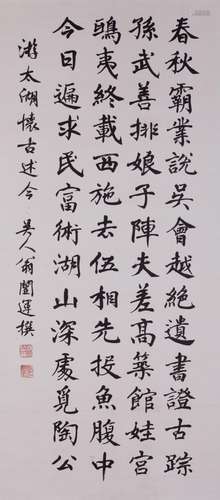 春秋霸業說吳會越絕遺書證古踪
孫武善排娘子陣夫差高築館娃宮
鴟夷終載西施去伍相先投魚腹中
今日遍求民富術湖山深處覓陶公
游太湖懷古述今 吳人翁闓運撰